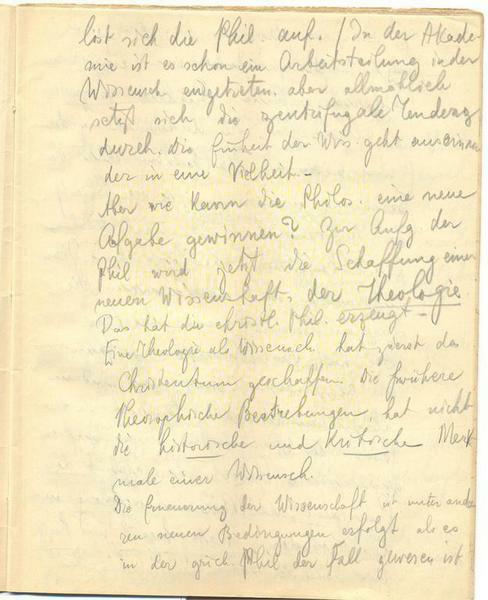 löst sich die Phil. auf. / In der Akade-
mie ist es schon ein Arbeitsteilung in der
Wissensch eingetreten. aber allmählich
setzt sich die zentrifugale Tendenz
durch. Die Einheit der Wiss. geht auseinan
der in eine Vielheit. -
Aber wie kann die Philos. eine neue
Afgabe gewinnen? Zur Aufg der
Phil wird jetzt die Schaffung einer
neuen Wissenschaft, der Theologie
Das hat die christl. Phil. erzeugt -
Eine Theologie als Wissensch. hat zuerst das
Christentum geschaffen. Die frühere
theosophische Bestrebungen, hat nicht
die historische und kritische Merk
male einer Wissensch.
Die Erneuerung der Wissenschaft ist unter ande
ren neuen Bedingungen erfolgt als es
in der griech. Phil der Fall gewesen ist